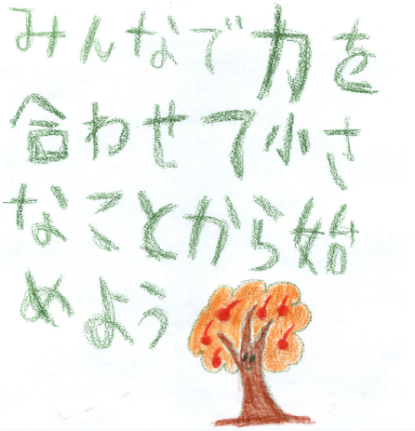 みんなで力を
合わせて小さ
なことから始
めよう